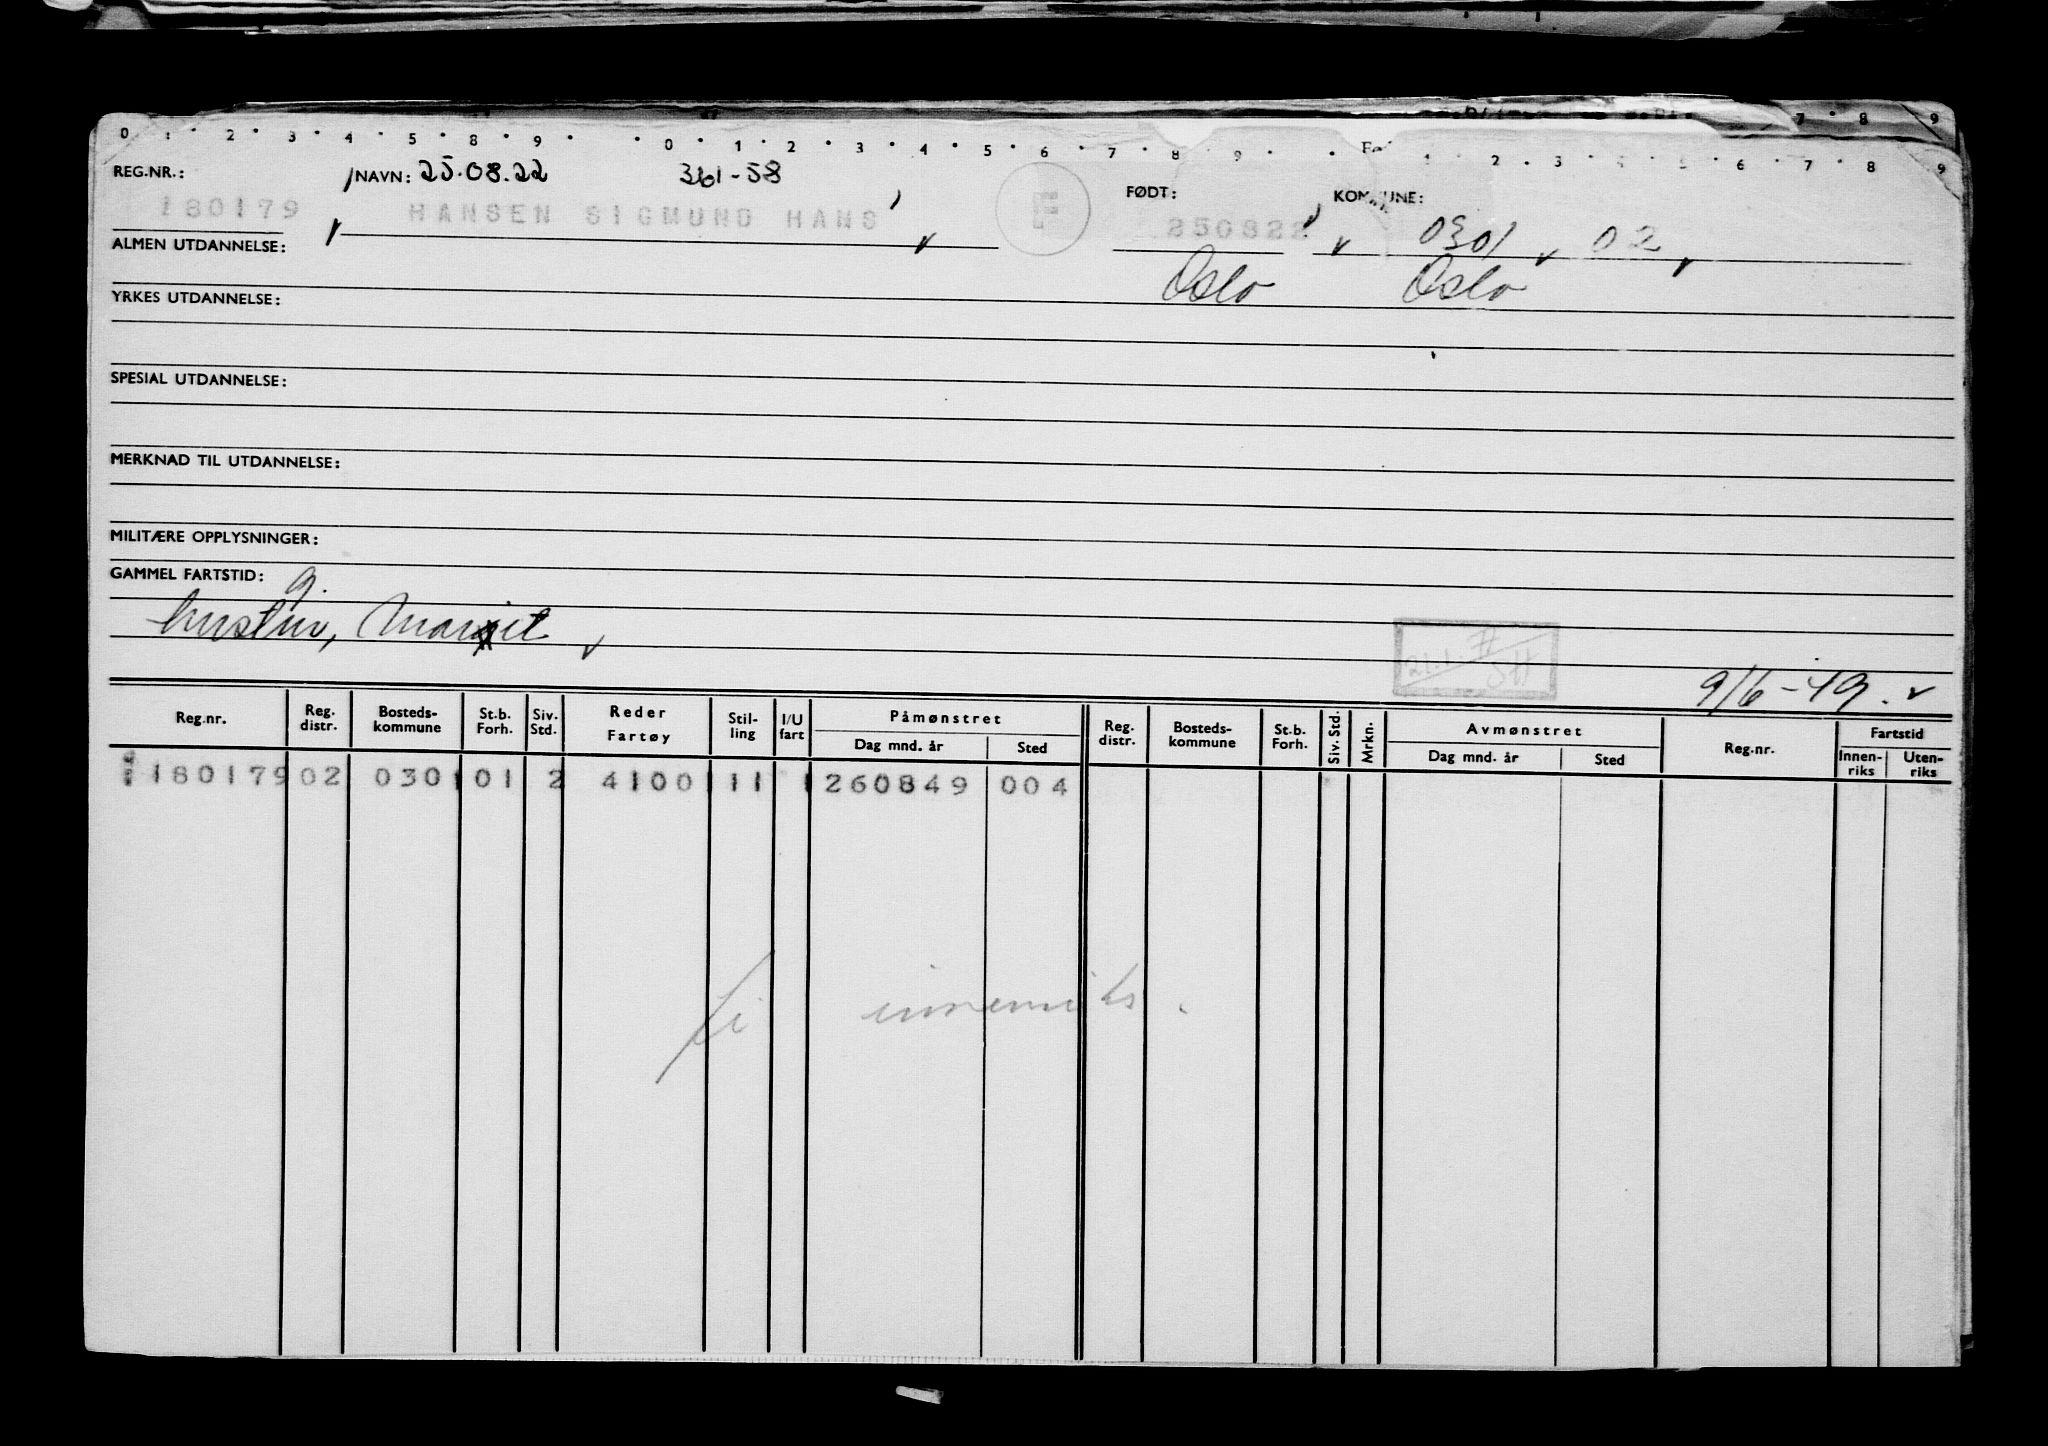 0 1 2 3 4 5 8 9 0 1 2 3 4 5 6 7 8 9 1 2 3 4 5 6 7 8 9
REG.NR.: NAVN: 25.08.22 361-58 FØDT: KOMMUNE:
180179 HANSEN SIGMUND HANS F 250822 0301 02
ALMEN UTDANNELSE: Oslo Oslo
YRKES UTDANNELSE:
SPESIAL UTDANNELSE:
MERKNAD TIL UTDANNELSE:
MILITÆRE OPPLYSNINGER:
GAMMEL FARTSTID: g.
hustru, Margit
9/6-49.
Reg.nr. Reg. distr. Bosteds-kommune St.b. Forh. Siv. Std. Reder Fartøy Stil-ling I/U fart Påmønstret Dag mnd. år Sted Reg. distr. Bosteds-kommune St.b. Forh. Siv. Std. Mrkn. Avmønstret Dag mnd. år Sted Reg.nr. Fartstid Innen-riks Uten-riks
180179 02 0301 01 2 4100 11 1 260849 004
innenriks.